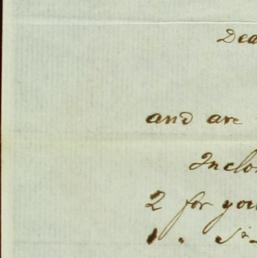 Dea
and are
Inclo
2 for you